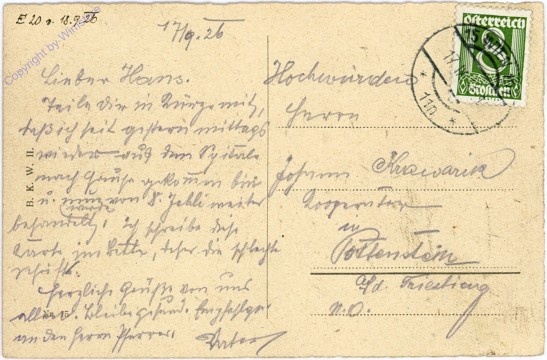 E 20 v. 18.9.26
17/9.26
Copyright by:
Österreich
8
Groschen
WIEN
11a
Lieber Hans.
Teile dir in Kürze mit,
daß ich seit gestern mittags
wieder aus dem Spitale
nach Hause gekommen bin
u. nun von weiter
werde
behandelt, ich schreibe diese
Karte im Bette, daher die schlechte
Schrift.
Herzliche Grüße von uns
allen. Bleibe gesund. Empfehlge
an den Herrn Pfarrer.
Vater
B. K. W. II.
Hochwürden
Herrn
Johann Krawarik
Kooperator
in
Pottenstein
a/d. Triesting
N.Ö.